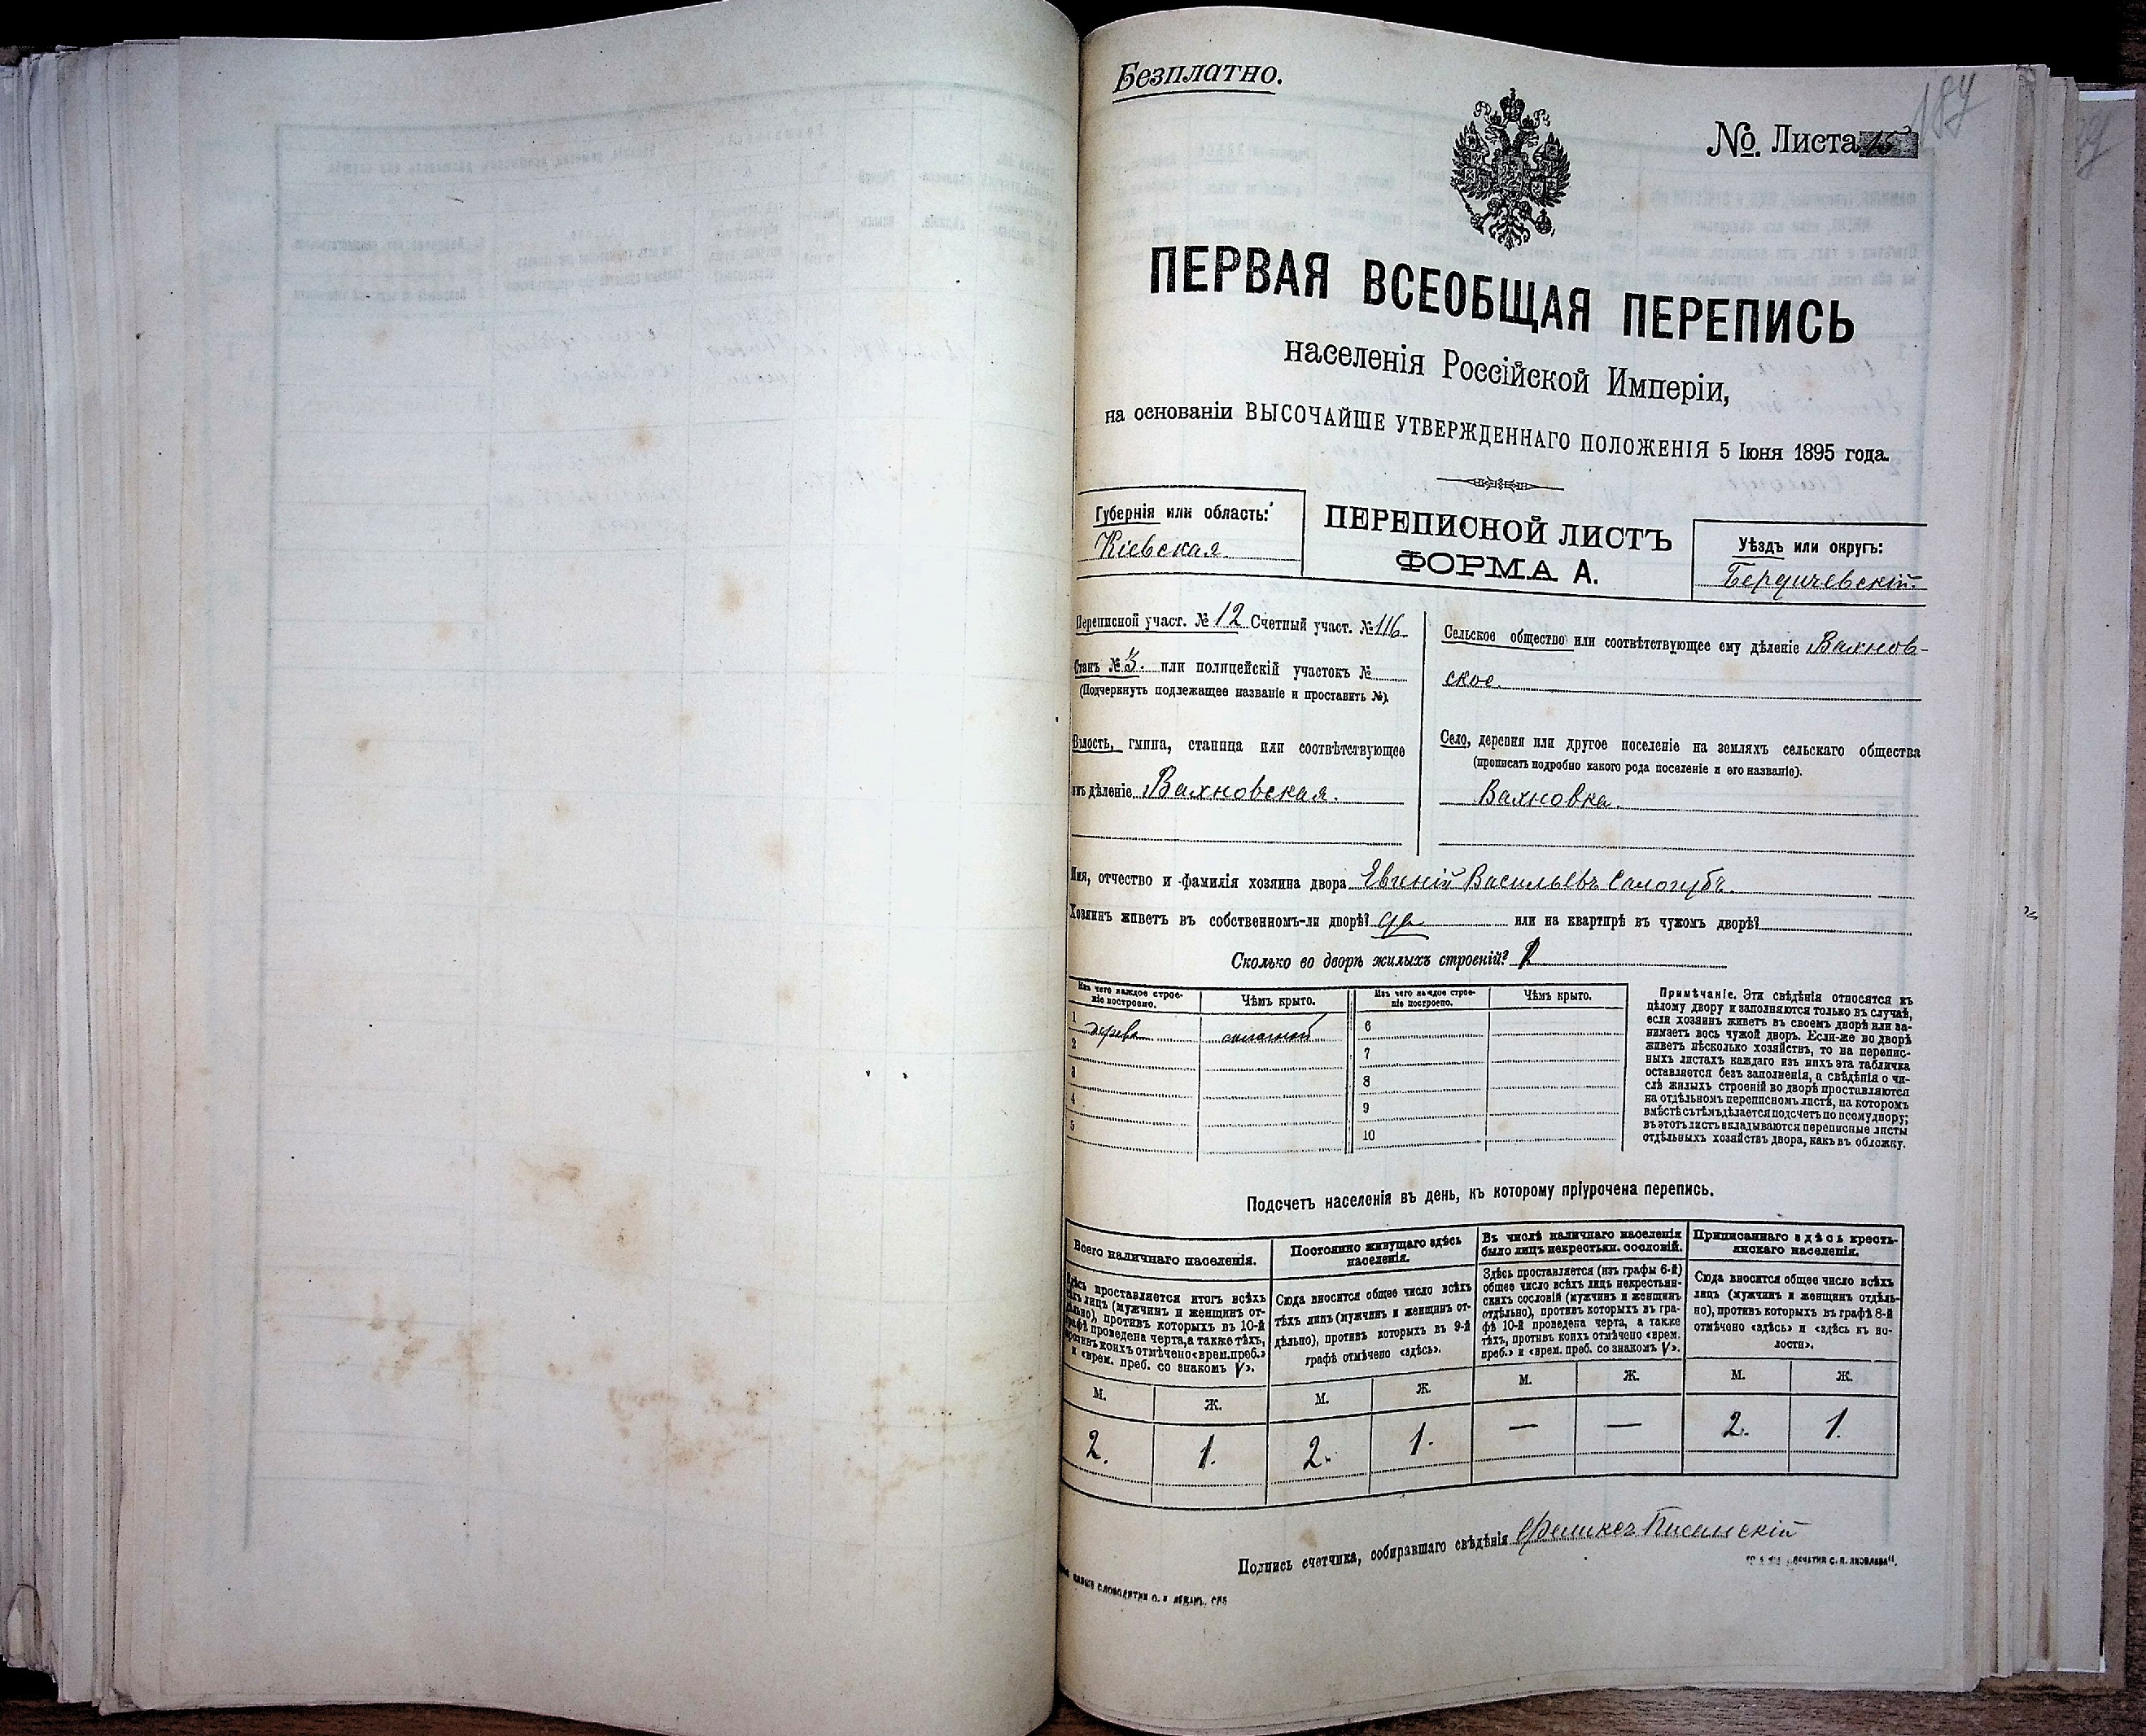 Безплатно.
187
№ Листа
ПЕРВАЯ ВСЕОБЩАЯ ПЕРЕПИСЬ
населенія Россійской Имперіи,
на основаніи ВЫСОЧАЙШЕ УТВЕРЖДЕННАГО ПОЛОЖЕНІЯ 5 Іюня 1895 года.
Губернія или область:
Кіевская
ПЕРЕПИСНОЙ ЛИСТЪ
ФОРМА А.
Уѣздъ или округъ:
Бердичевскій.
Переписной участ. № 12 Счетный участ. № 116
Станъ № 3. или полицейскій участокъ №
(Подчеркнуть подлежащее названіе и проставить №).
Волость, гмина, станица или соотвѣтствующее
имъ дѣленіе Вахновская.
Сельское общество или соотвѣтствующее ему дѣленіе Вахнов-
ское
Село, деревня или другое поселеніе на земляхъ сельскаго общества
(прописать подробно какого рода поселеніе и его названіе).
Вахновка.
Имя, отчество и фамилія хозяина двора Евгеній Васильевъ Сологубъ.
Хозяинъ живетъ въ собственномъ-ли дворѣ? да или на квартирѣ въ чужомъ дворѣ?
Сколько во дворѣ жилыхъ строеній?
Изъ чего каждое строе-
ніе построено.
Чѣмъ крыто.
Изъ чего каждое строе-
ніе построено.
Чѣмъ крыто.
1 дерева соломой
2
3
4
5
6
7
8
9
10
Примѣчаніе. Эти свѣдѣнія относятся къ
цѣлому двору и заполняются только въ случаѣ,
если хозяинъ живетъ въ своемъ дворѣ или за-
нимаетъ весь чужой дворъ. Если-же во дворѣ
живетъ нѣсколько хозяйствъ, то на перепис-
ныхъ листахъ каждаго изъ нихъ эта табличка
оставляется безъ заполненія, а свѣдѣнія о чи-
слѣ жилыхъ строеній во дворѣ проставляются
на отдѣльномъ переписномъ листѣ, на которомъ
вмѣстѣ съ тѣмъ дѣлается подсчетъ по всему двору;
въ этотъ листъ вкладываются переписные листы
отдѣльныхъ хозяйствъ двора, какъ въ обложку.
Подсчетъ населенія въ день, къ которому пріурочена перепись.
Всего наличнаго населенія.
Здѣсь проставляется итогъ всѣхъ
тѣхъ лицъ (мужчинъ и женщинъ от-
дѣльно), противъ которыхъ въ 10-й
графѣ проведена черта, а также тѣхъ,
противъ коихъ отмѣчено «врем. преб.»
и «врем. преб. со знакомъ V».
Постоянно живущаго здѣсь
населенія.
Сюда вносится общее число всѣхъ
тѣхъ лицъ (мужчинъ и женщинъ от-
дѣльно), противъ которыхъ въ 9-й
графѣ отмѣчено «здѣсь».
Въ числѣ наличнаго населенія
было лицъ некрестьян. сословій.
Здѣсь проставляется (изъ графы 6-й)
общее число всѣхъ лицъ некрестьян-
скихъ сословій (мужчинъ и женщинъ
отдѣльно), противъ которыхъ въ гра-
фѣ 10-й проведена черта, а также
тѣхъ, противъ коихъ отмѣчено «врем.
преб.» и «врем. преб. со знакомъ V».
Приписаннаго здѣсь кресть-
янскаго населенія.
Сюда вносится общее число всѣхъ
лицъ (мужчинъ и женщинъ отдѣль-
но), противъ которыхъ въ графѣ 8-й
отмѣчено «здѣсь» и «здѣсь къ во-
лости».
М. Ж. М. Ж. М. Ж. М. Ж.
2. 1. 2. 1. — — 2. 1.
Подпись счетчика, собиравшаго свѣдѣнія Феликсъ Писанскій